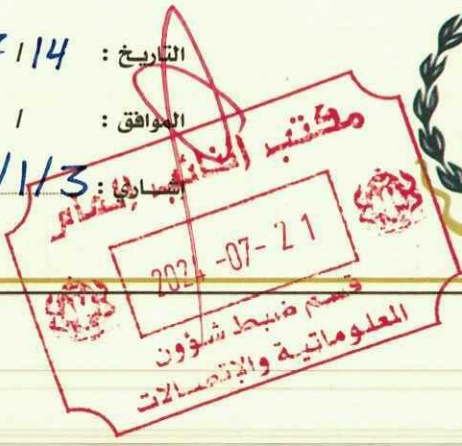 التاريخ : 14 /
الموافق : /
إشاري : 3/1/
مكتب النائب العام
2024 -07- 21
قسم ضبط شؤون
المعلوماتية والإتصالات